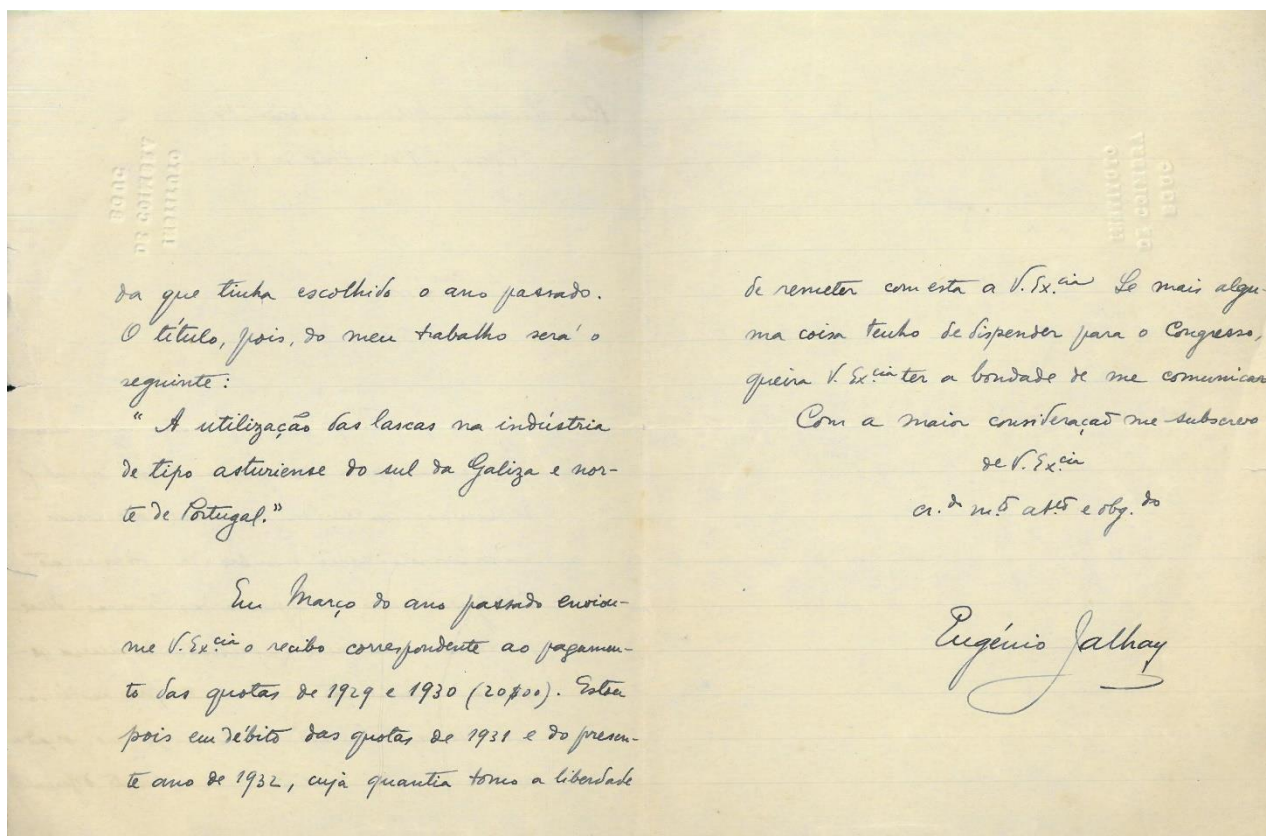 INSTITUTO
DE COIMBRA
BGUC
da que tinha escolhido o ano passado.
O título, pois, do meu trabalho será o
seguinte:
“A utilização das lascas na indústria
de tipo asturiense do sul da Galiza e nor-
te de Portugal.”
Em Março do ano passado enviou-
me V. Ex.cia o recibo correspondente ao pagamen-
to das quotas de 1929 e 1930 (20$00). Estou
pois em débito das quotas de 1931 e do presen-
te ano de 1932, cuja quantia tomo a liberdade
INSTITUTO
DE COIMBRA
BGUC
de remeter com esta a V. Ex.cia Se mais algu-
ma coisa tenho de dispender para o Congresso,
queira V. Ex.cia ter a bondade de me comunicar
Com a maior consideração me subscrevo
de V. Ex.cia
cr.do m.to at.to e obg.do
Eugénio Jalhay